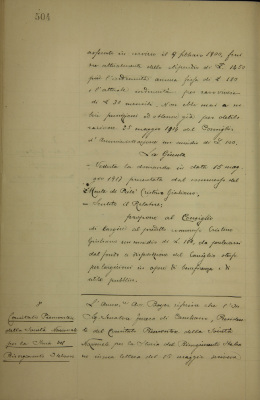 504
assunto in servizio il 9 febbraio 1900, frui
sce attualmente dello stipendio di L. 1450
più l'indennità annua fissa di L. 150
e l'attuale indennità pel caro viveri
di L. 21 mensili. Non ebbe mai a no
dei premi
25 maggio 1916 del Consiglio
d'Amministrazione un sussidio di L. 100,
La Giunta
- Veduta la domanda in data 15 mag
gio 1917 presentata dal commesso del
Monte di Pietà Cristino Giuliano,
- Sentito il Relatore;
propone al Consiglio
di largire al predetto commesso Cristino
Giuliano un sussidio di L. 100, da prelevarsi
dal fondo a disposizione del Consiglio stesso
per largizioni in opere di beneficenza e di
utilità pubblica.
Comitato Piemontese
della Società Nazionale
per la Storia del
Risorgimento Italiano
L'Amm. Av. riferisce che l'On.
Senatore di Presiden
te del Comitato Piemontese della Società
Nazionale per la Storia del Risorgimento Italiano
in una lettera del 15 maggio